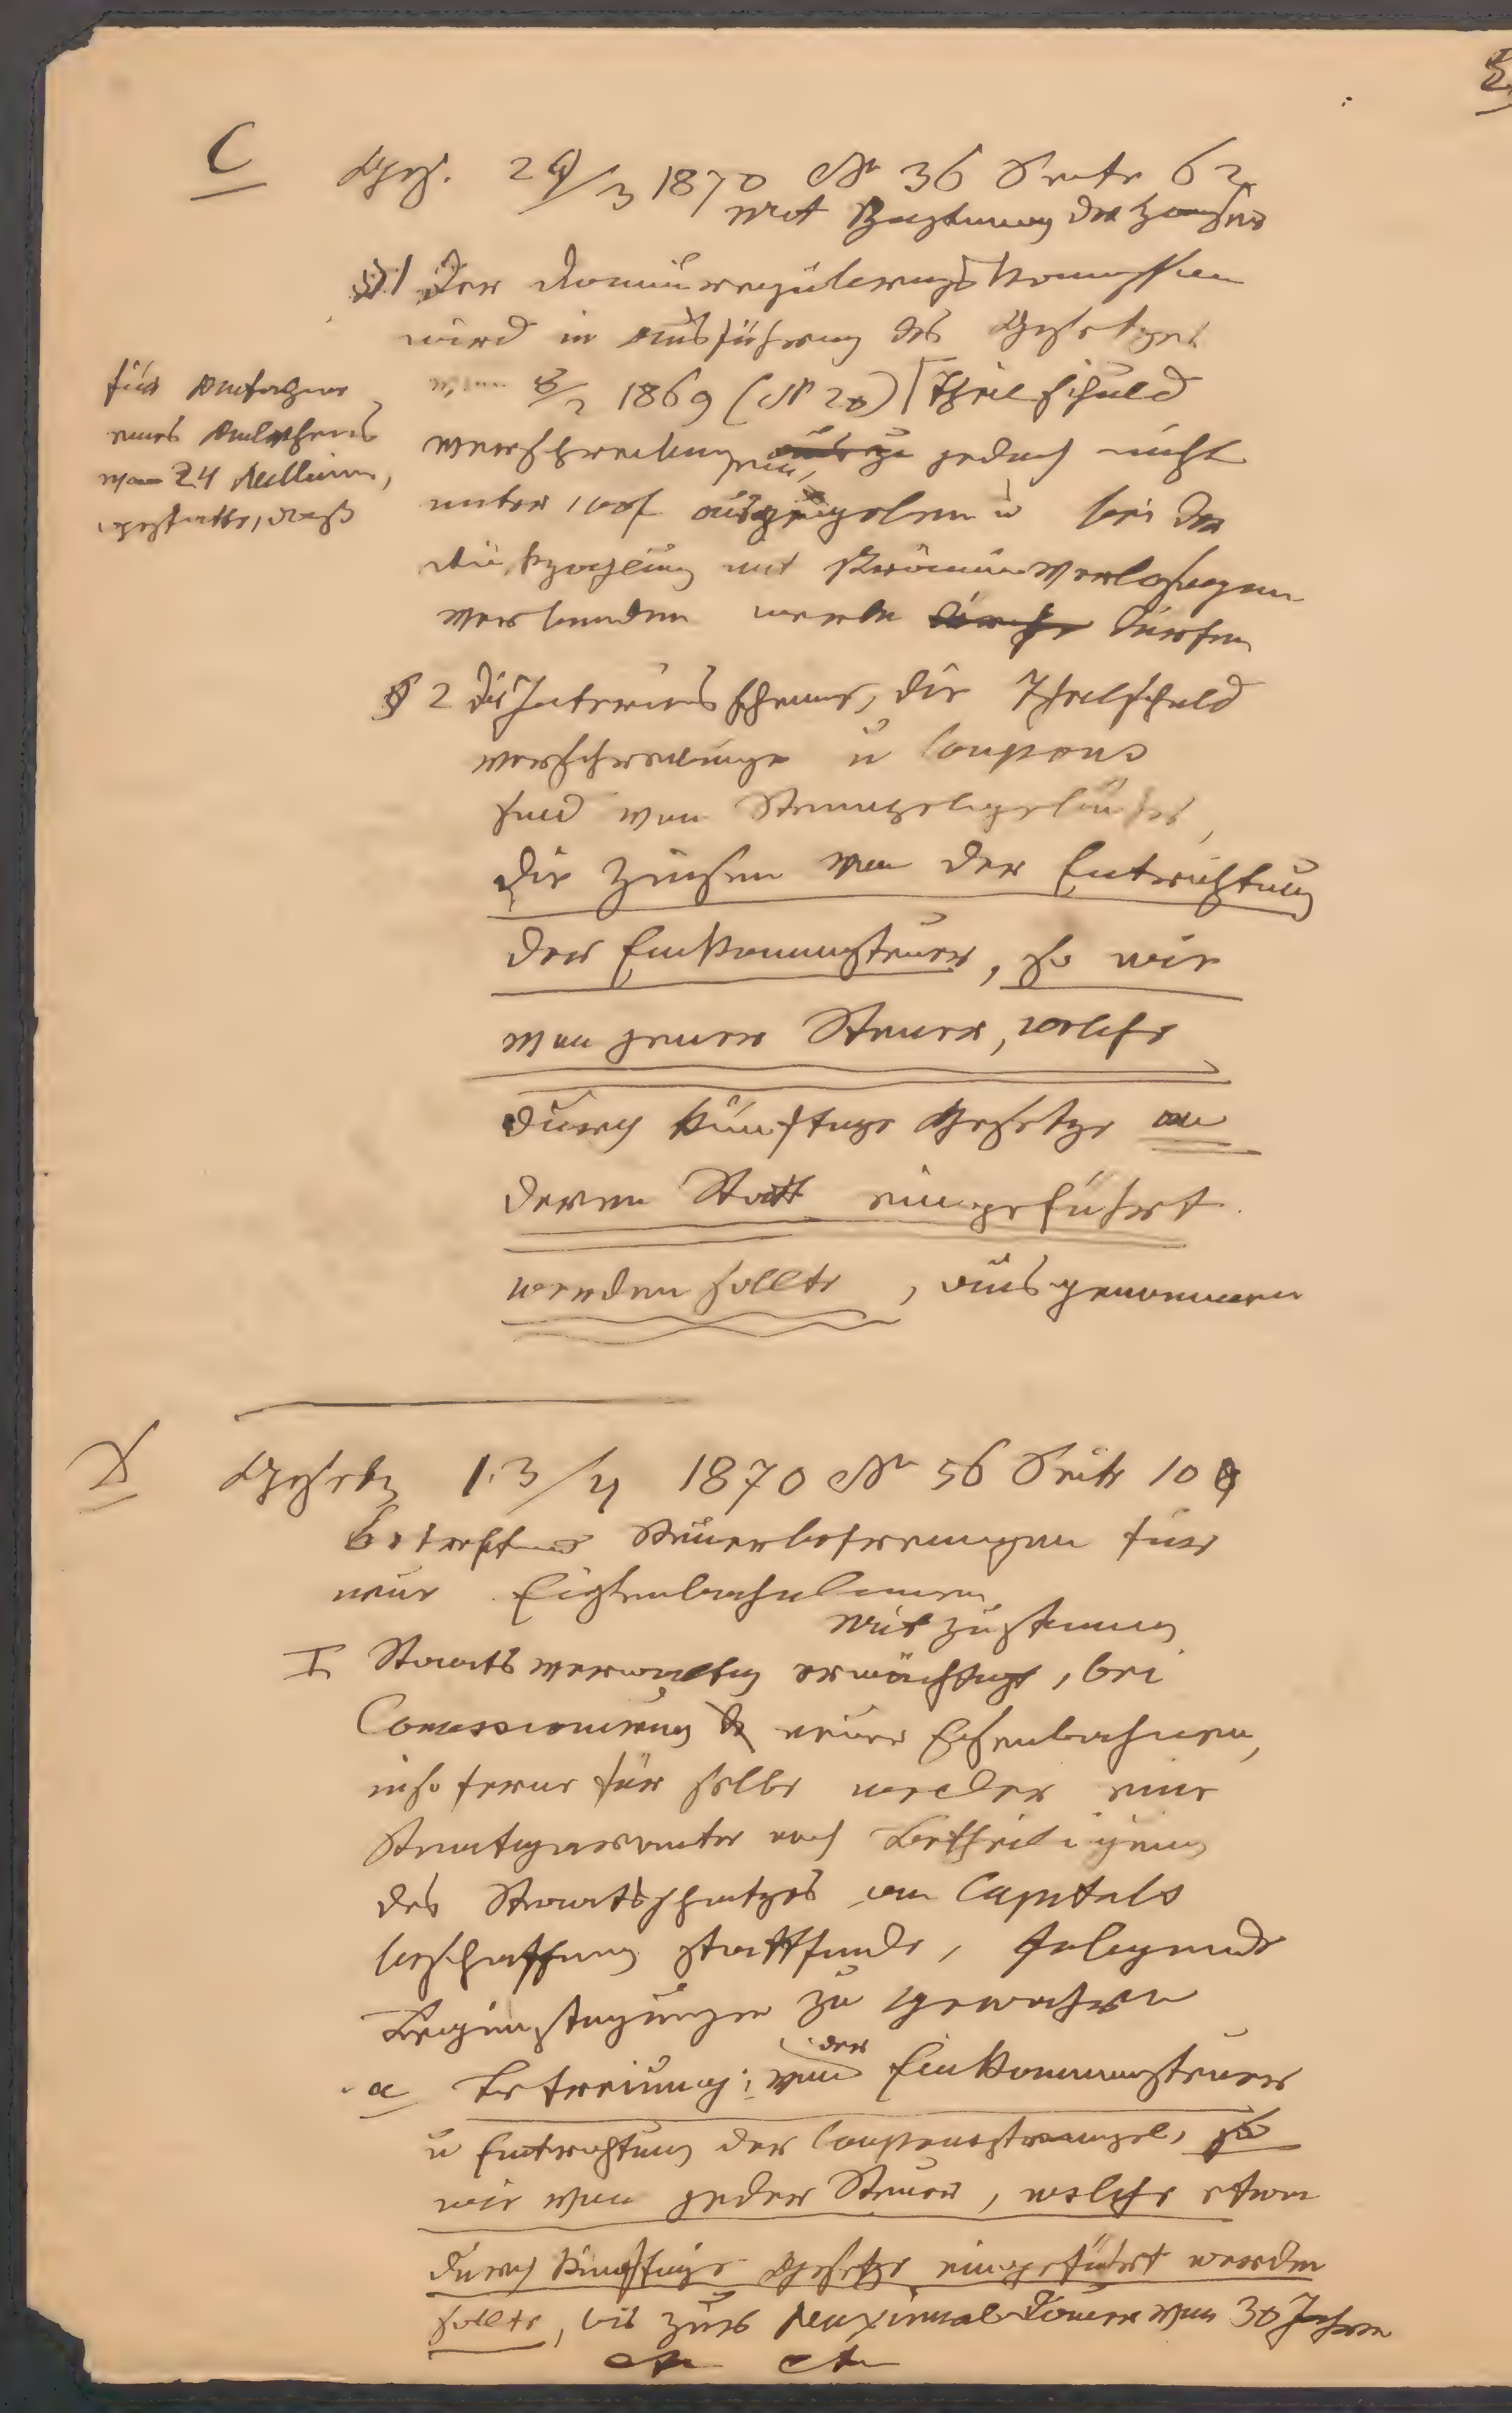 C
Ges. 29/3 1870 No 36 Seite 62
mit Zustimmung der Häuser
§ 1 Der Donauregulirungs Kommission
wird in Ausführung des Gesetzes
vom 8/2 1869 (No 20) Theilschuld
für Aufnahme
eines Anlehens
von 24 Millionen,
gestattet, daß
verschreibungen, jedoch nicht
unter 100 f auszugeben u bei der
Rückzahlung mit Prämienverlosungen
verbunden werde dürfen
§ 2 Die Interims Scheine, die Theilschuld
verschreibunge u Coupons
sind von Stempelgebühr,
die Zinsen von der Entrichtung
der Einkommensteuer, so wie
von jener Steuer, welche
durch künftige Gesetze an
deren Statt eingeführt
werden sollte, ausgenommen
Gesetz 13/4 1870 No 56 Seite 10
betreffend Steuerbefreiungen für
neue Eisenbahnlinien
mit Zustimmung
I Staatsverwaltung ermächtigt, bei
Concessionirung neuer Eisenbahnen,
insoferne für selbe weder eine
Staatsgarantie noch Betheiligung
des Staatsschatzes an Capitals
beschaffung stattfinde, folgende
Begünstigungen zu gewähren
a Befreiung von der Einkommensteuer
u Entrichtung der Couponstempel, so
wie von jeder Steuer, welche etwa
durch künftige Gesetze eingeführt werden
sollte, bis zur Maximal Dauer von 30 Jahren
etc etc